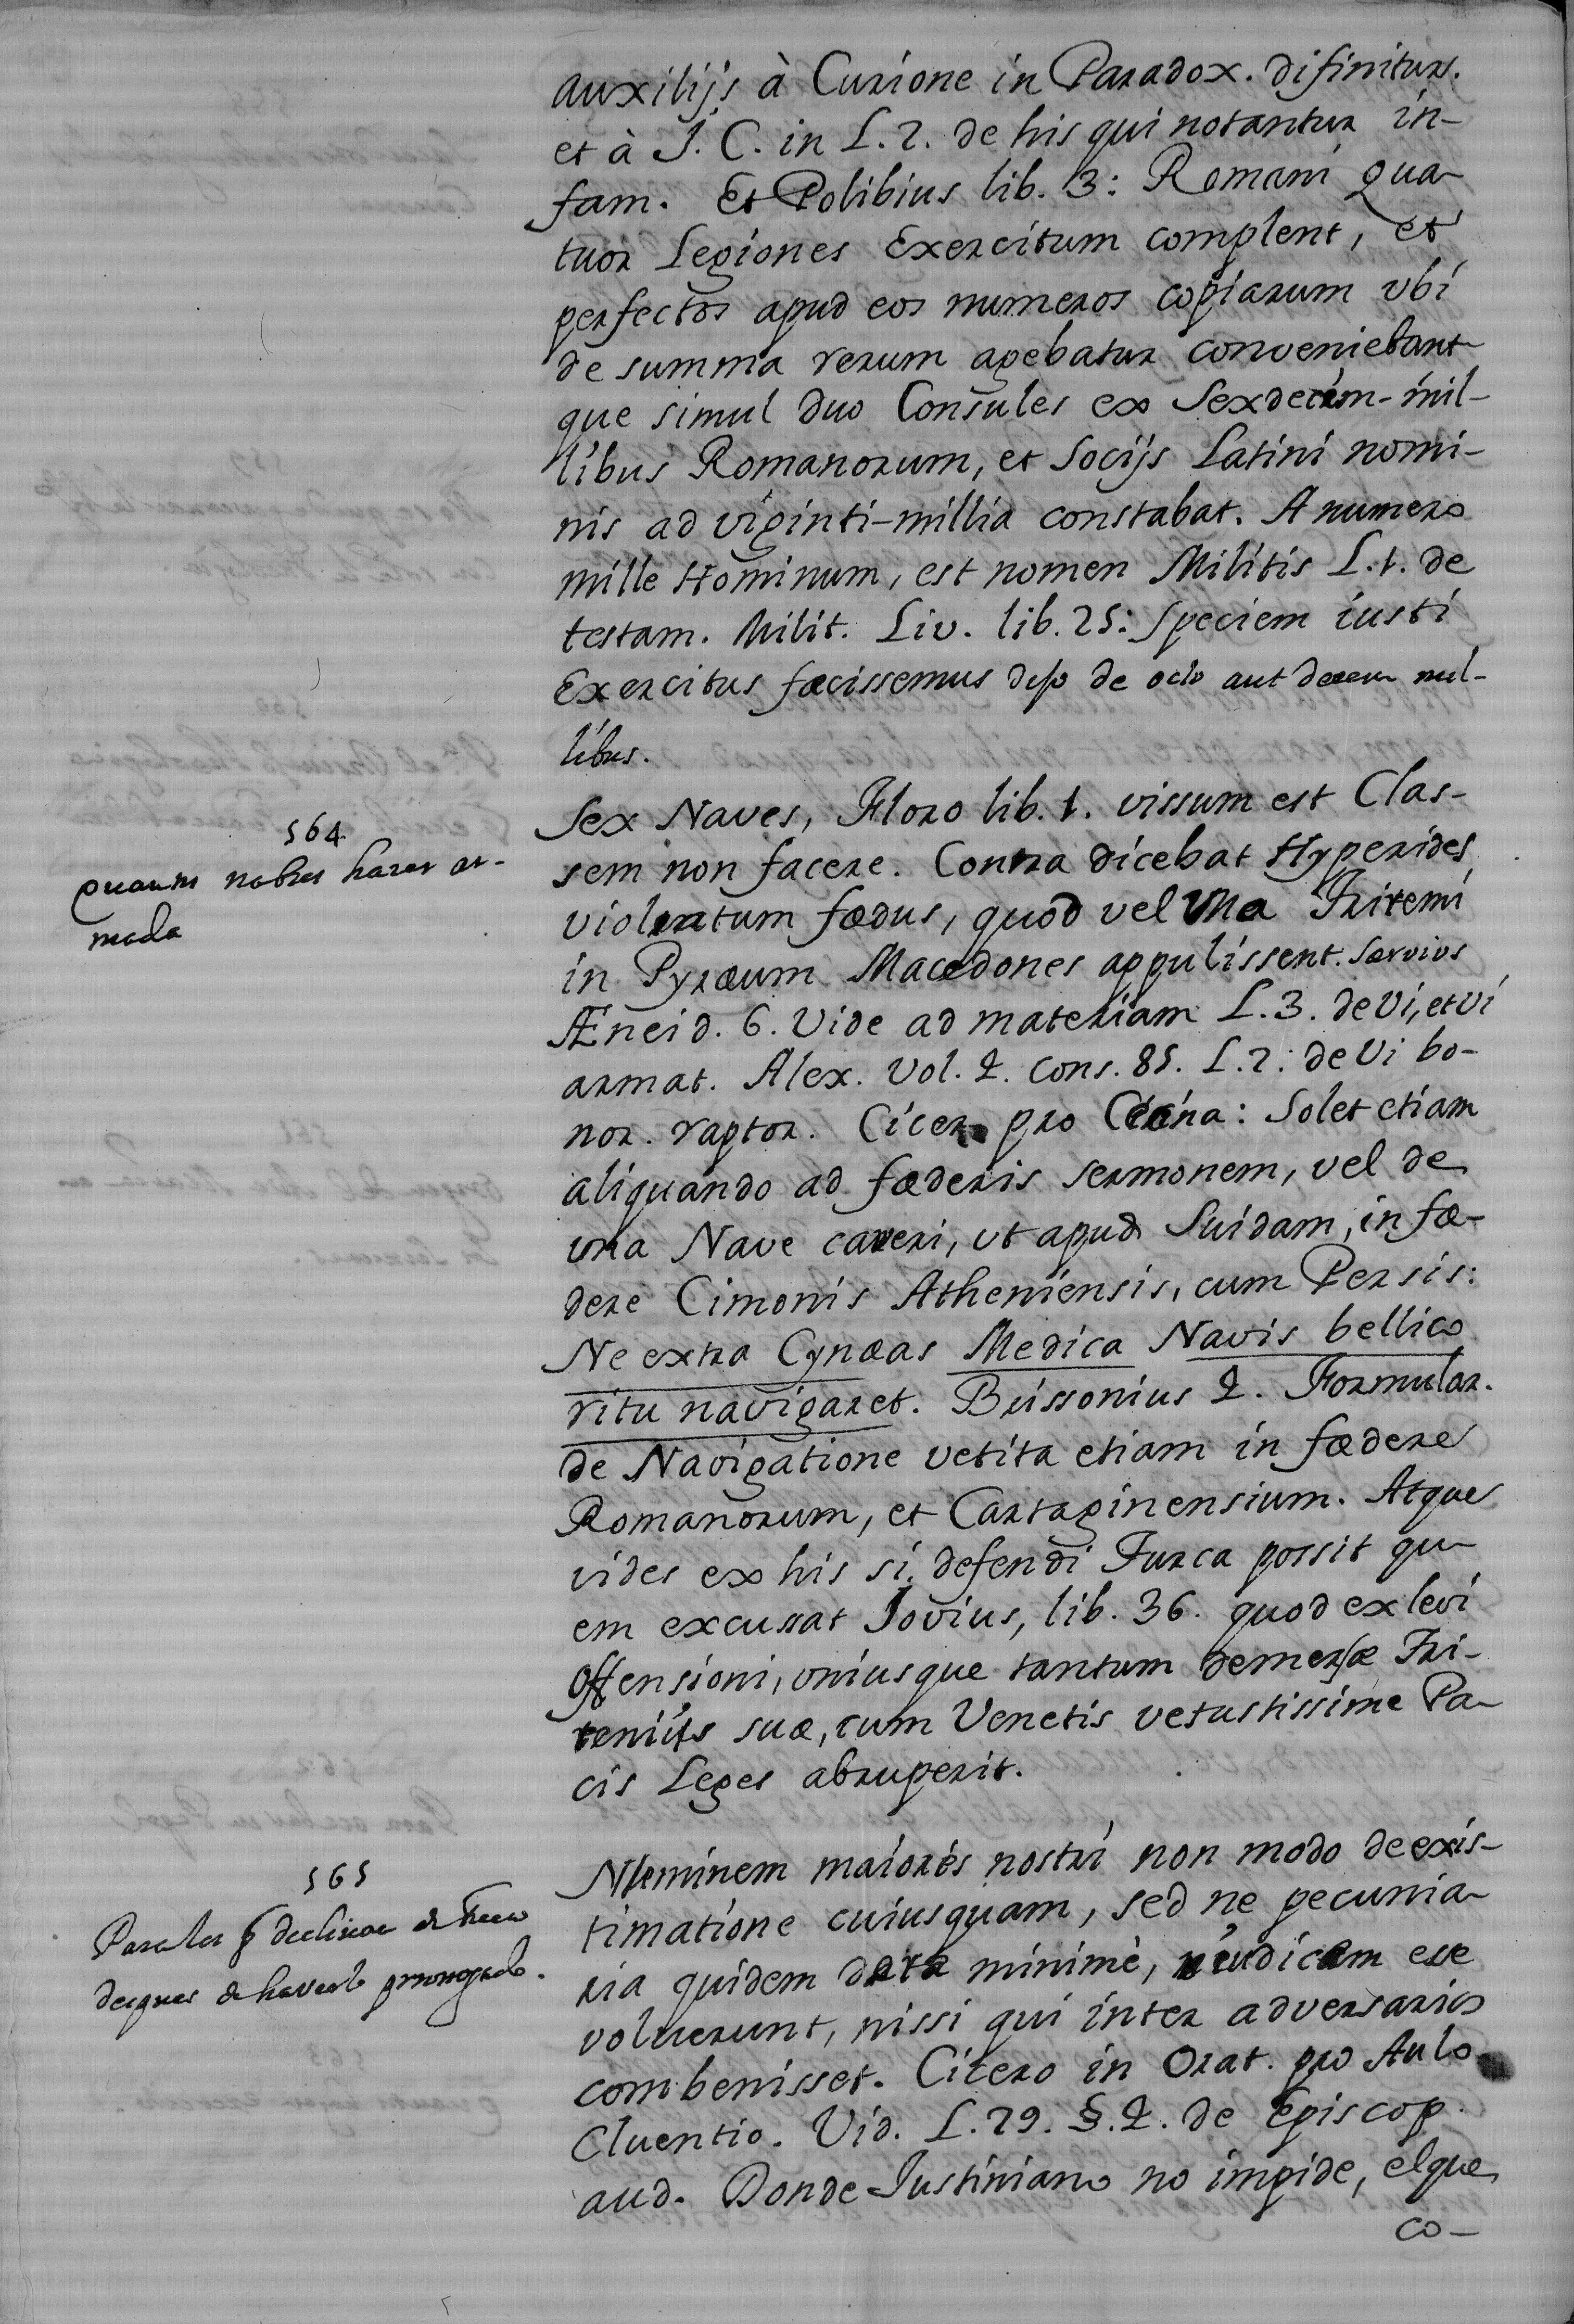 auxilijs à Curione in Paradox. difinitur.
et à J. C. in L. 2. de his qui notantur in-
fam. Et Polibius lib. 3: Romani qua-
tuor Legiones Exercitum complent, et
perfectos apud eos numeros copiarum vbi
de summa rerum agebatur conveniebant-
que simul duo Consules ex Sexdecim-mil-
libus Romanorum, et Socijs Latini nomi-
nis ad viginti-millia constabat. A numero
mille Hominum, est nomen Militis L. 1. de
testam. Milit. Liv. lib. 25: Speciem iusti
Exercitus fœcissemus de octo aut decem mil-
libus.
564
quantas nabes hazer ar-
mada
Sex Naves, Floro lib. 1. vissum est Clas-
sem non facere. Contra dicebat Hyperides
violatum fœdus, quod vel una Triremi
in Pyræum Macedones appulissent. Sœrvivs
Æneid. 6. Vide ad materiam L. 3. de Vi, et Vi
armat. Alex. Vol. 2. Cons. 85. L. 2. de Vi bo-
nor. raptor. Cicer. pro Cecina: Solet etiam
aliquando ad fœderis sermonem, vel de
una Nave caveri, vt apud Suidam, in fœ-
dere Cimonis Atheniensis, cum Persis:
Ne extra Cynæas Medica Navis bellico
ritu navigaret. Brissonius 2. Formular.
de Navigatione vetita etiam in fœdere
Romanorum, et Cartaginensium. Atque
vides ex his si defendi Turca possit qu-
em excussat Jovius, lib. 36. quod ex levi
offensioni, vniusque tantum demersæ Tri-
remis suæ, cum Venetis vetustissime Pa-
cis Leges abruperit.
565
declinar de
despues de haverlo prorrogado.
Neminem maiores nostri non modo de exis-
timatione cuiusquam, sed ne pecunia-
ria quidem de re minimè, iudicem esse
voluerunt, nissi qui inter adversarios
combenisset. Cicero in Orat. pro Aulo
Cluentio. Vid. L. 29. §. 2. de Episcop.
aud. Donde Justiniano no impide, el que
co-